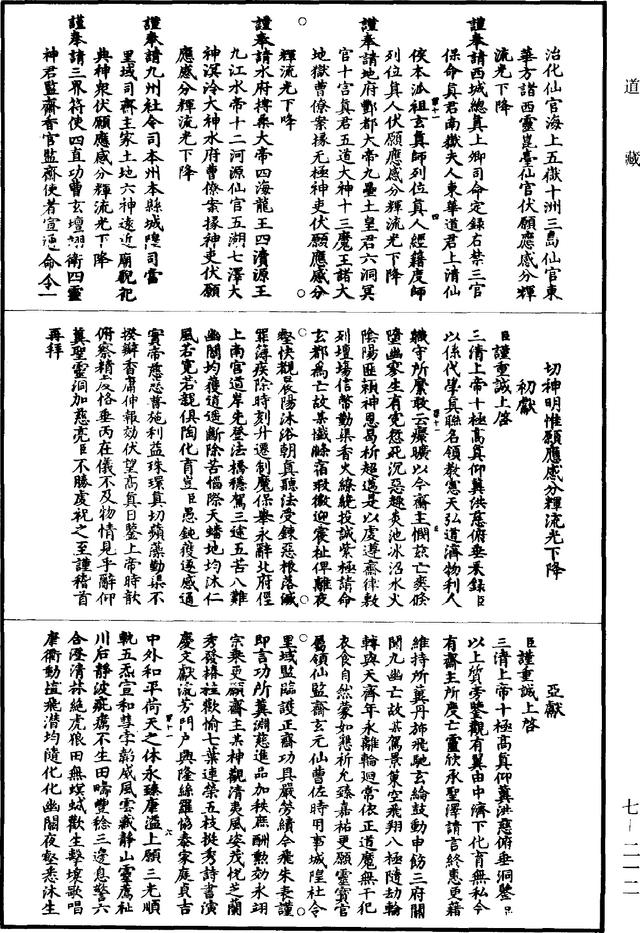 道藏
治化仙官海上五嶽十洲三島仙官東
華方諸西靈崑臺仙官伏願應感分輝
流光下降
謹奉請西城總真上卿司命定錄右禁三官
保命真君南嶽夫人東華道君上清仙
侯本派祖玄真師列位真人經籍度師
列位真人伏願應感分輝流光下降
謹奉請地府酆都大帝九壘土皇君六洞冥
官十宮真君五道大神十三魔王諸大
地獄曹僚案掾无極神吏伏願應感分
輝流光下降
謹奉請水府搏桑大帝四海龍王四瀆源王
九江水帝十二河源仙官五湖七澤大
神溟泠大神水府曹僚案掾神吏伏願
應感分輝流光下降
謹奉請九州社令司本州本縣城隍司當
里域司齋主家土地六神遠近廟觀祀
典神衆伏願應感分輝流光下降
謹奉請三界符使四直功曹玄壇翊衛四靈
神君監齋香官監齋使者宣通命令一
切神明惟願應感分輝流光下降
初獻
臣謹重誠上啓
三清上帝十極高真仰冀洪慈俯垂采錄臣
以係代學真聯名領教憲天弘道濟物利人
職守所縻敢云癏曠以今齋主憫茲亡爽條
墮幽冥生有冤愆死沉惡趣炎池冰沼水火
陰陽匪賴神恩曷祈超邁是以虔遵齋律敷
列壇場信幣勤渠香火綠繞投誠紫極請命
玄都爲亡故某懺滌宿瑕徽迎寰祉俾離夜
壑快覩晨陽沐浴朝真聽法受鍊惡根落滅
罪薄疾除時刻升遷制魔保舉永辭北府徑
上南宮道岸先登法橋穩駕三途五苦八難
幽關均獲逍遥斷除苦惱際天蟠地均沐仁
風若冤若親俱陶化育豈臣愚鈍獲遂感通
實帝慈悲普施利益珠環真切蘋藻勤渠不
揆辦香庸伸報効伏望高真日鑒上帝時歆
俯察精衷恪垂丙在儀不及物情見乎辭仰
冀聖靈洞加慈亮臣不勝虔祝之至謹稽首
再拜
亞獻
臣謹重誠上啓
三清上帝十極高真仰冀洪慈俯垂洞鑒臣
以上質旁鑒觀有冀由中濟下化育無私今
有齋主所度亡靈欣承聖澤請言終惠更藉
維持所冀丹旆飛馳玄綸鼓動申飭三府關
開九幽亡故某駕景策空飛翔八極隨劫輪
轉與天齊年永離輪迴常依正道魔無干犯
衣食自然蒙如懇祈允臻嘉祐更願靈寶官
屬領仙監齋玄元仙曹佐時用事城隍社令
里域監臨護正齋功具嚴勞績令飛朱表謹
即言功所冀淵慈進品加秩庶酬勲効永翊
宗乘更願齋主某神觀清夷風姿茂悅芝蘭
秀發椿桂歡愉七葉連榮五枝挺秀詩書演
慶文獻流芳門戶興隆絲羅協泰家庭貞吉
中外和平荷天之休永臻康溢上願三光順
軌五炁宣和尊孛韜威風雲藏靜山靈薦祉
川后靜波疵癘不生田疇豐稔三邊息警六
合澄清林絶虎狼田無螟蜮歡生擊壤歌唱
康衢動植飛潛均隨化化幽關夜壑悉沐生
七—二一二